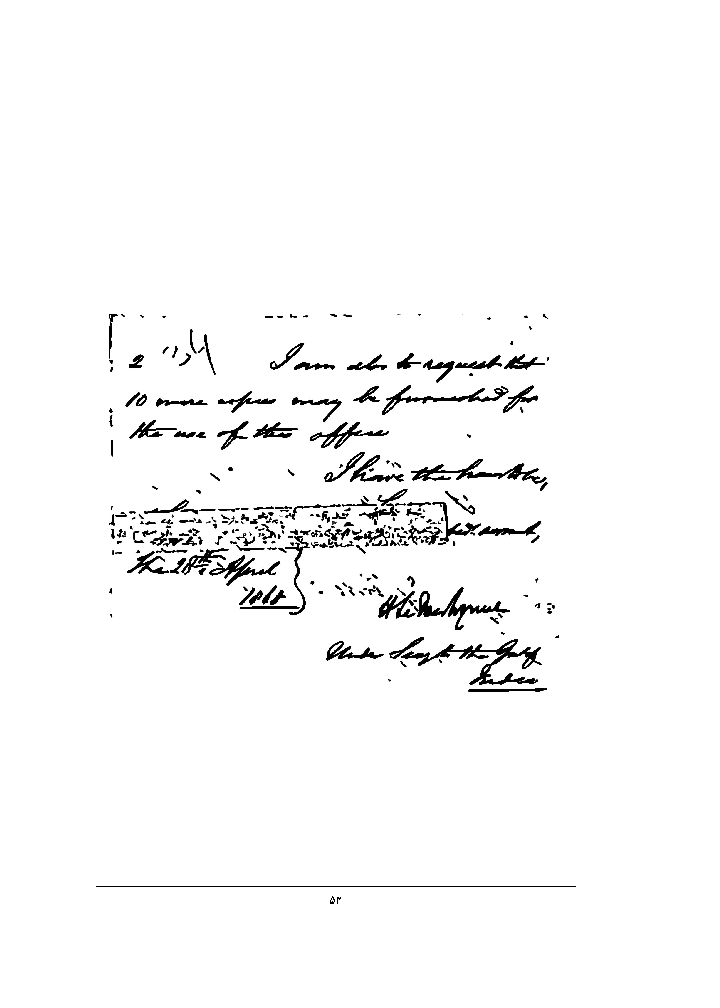 2 I am also to request that
10 more copies may be furnished for
the use of this office
I have the honor to be,
The 28th April
1868
Under Secy to the Govt of
India
۵۳